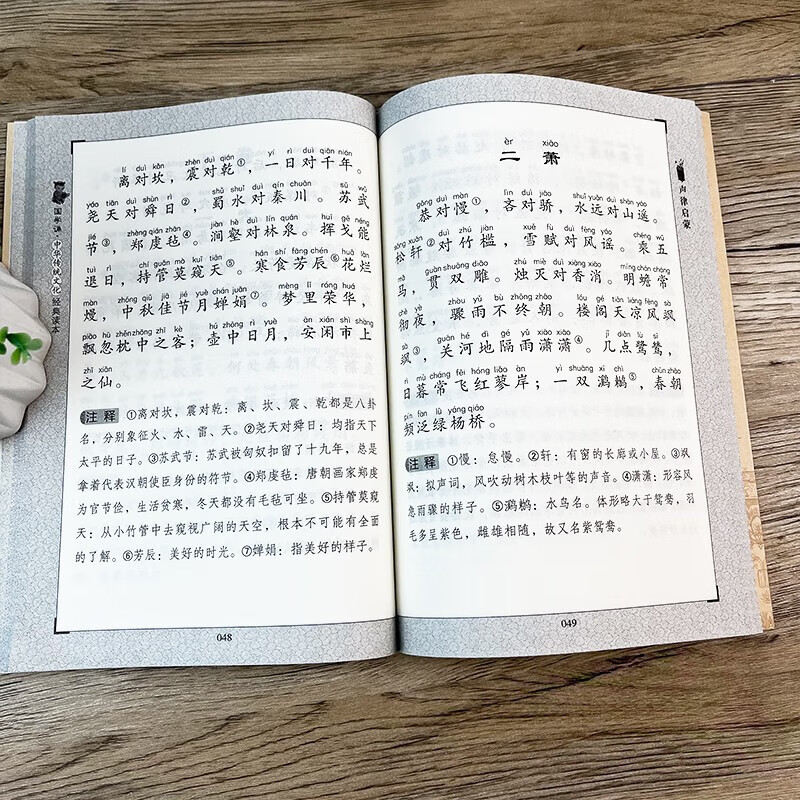 lí duì kǎn zhèn duì qián yí rì duì qiān nián
离对坎，震对乾①，一日对千年。
yáo tiān duì shùn rì shǔ shuǐ duì qín chuān sū wǔ
尧天对舜日②，蜀水对秦川。苏武
jié zhèng qián zhān jiàn hè duì lín quán huī gē néng
节③，郑虔毡④。涧壑对林泉。挥戈能
tuì rì chí guǎn mò kuī tiān hán shí fāng chén huā làn
退日，持管莫窥天⑤。寒食芳辰⑥花烂
màn zhōng qiū jiā jié yuè chán juān mèng lǐ róng huá
熳，中秋佳节月婵娟⑦。梦里荣华，
piāo hū zhěn zhōng zhī kè hú zhōng rì yuè ān xián shì shàng
飘忽枕中之客；壶中日月，安闲市上
zhī xiān
之仙。
注释 ①离对坎，震对乾：离、坎、震、乾都是八卦
名，分别象征火、水、雷、天。②尧天对舜日：均指天下
太平的日子。③苏武节：苏武被匈奴扣留了十九年，总是
拿着代表汉朝使臣身份的符节。④郑虔毡：唐朝画家郑虔
为官节俭，生活贫寒，冬天都没有毛毡可坐。⑤持管莫窥
天：从小竹管中去窥视广阔的天空，根本不可能有全面
的了解。⑥芳辰：美好的时光。⑦婵娟：指美好的样子。
048
中华传统文化
经典读本
èr xiāo
二 萧
gōng duì màn lìn duì jiāo shuǐ yuǎn duì shān yáo
恭对慢①，吝对骄，水远对山遥。
sōng xuān duì zhú jiàn xuě fù duì fēng yáo chéng wǔ
松轩②对竹槛，雪赋对风谣。乘五
mǎ guàn shuāng diāo zhú miè duì xiāng xiāo míng chán cháng
马，贯双雕。烛灭对香消。明蟾常
chè yè zhòu yǔ bù zhōng zhāo lóu gé tiān liáng fēng sà
彻夜，骤雨不终朝。楼阁天凉风飒
sà guān hé dì gé yǔ xiāo xiāo jǐ diǎn lù sī
飒③，关河地隔雨潇潇④。几点鹭鸶，
rì mù cháng fēi hóng liǎo àn yì shuāng xī chì chūn zhāo
日暮常飞红蓼岸；一双㶉鶒⑤，春朝
pín fàn lǜ yáng qiáo
频泛绿杨桥。
注释 ①慢：怠慢。②轩：有窗的长廊或小屋。③飒
飒：拟声词，风吹动树木枝叶等的声音。④潇潇：形容风
急雨骤的样子。⑤㶉鶒：水鸟名。体形略大于鸳鸯，羽
毛多呈紫色，雌雄相随，故又名紫鸳鸯。
049
声律启蒙